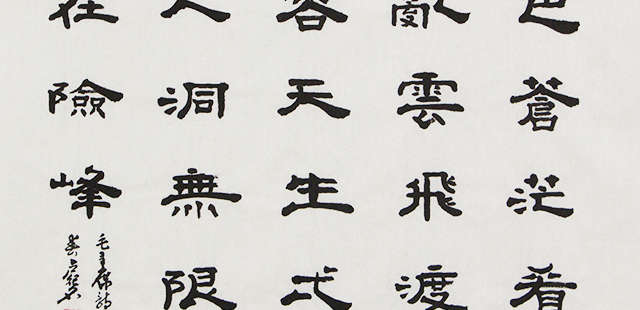 色蒼茫看
亂雲飛渡
容天生弌
人洞無限
在險峰
毛主席詩